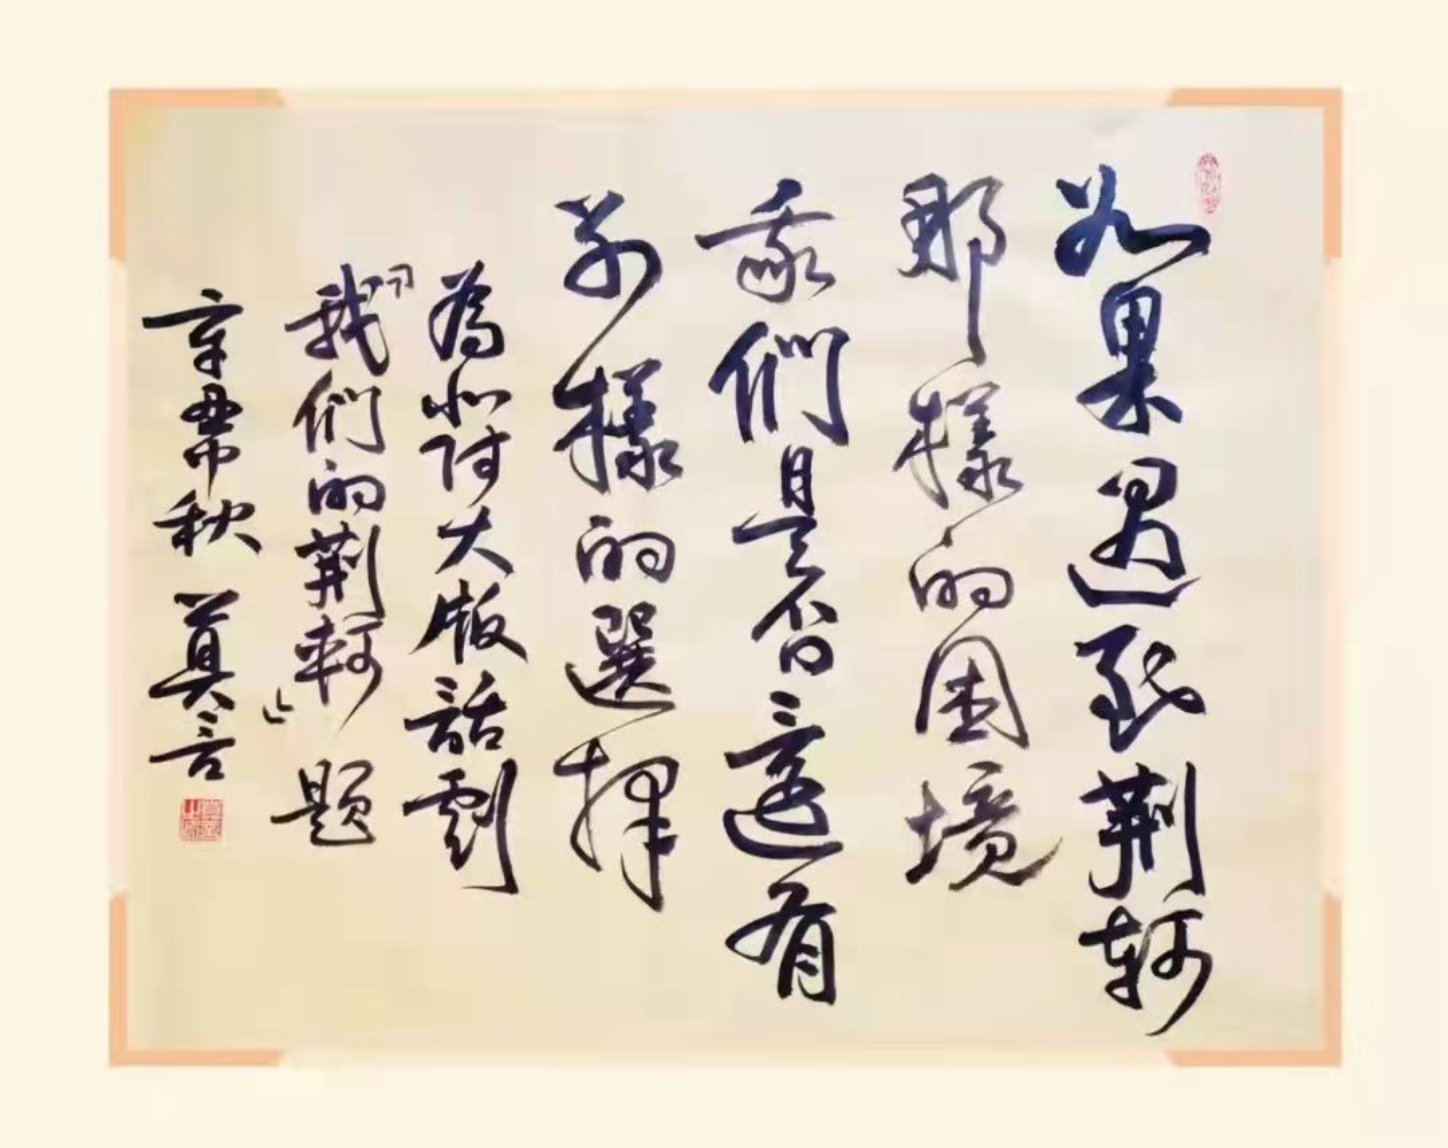 如果遇到荆軻
那樣的困境
我們是否還有
别樣的選擇
為北師大版話劇
「我們的荆軻」題
辛丑中秋 莫言